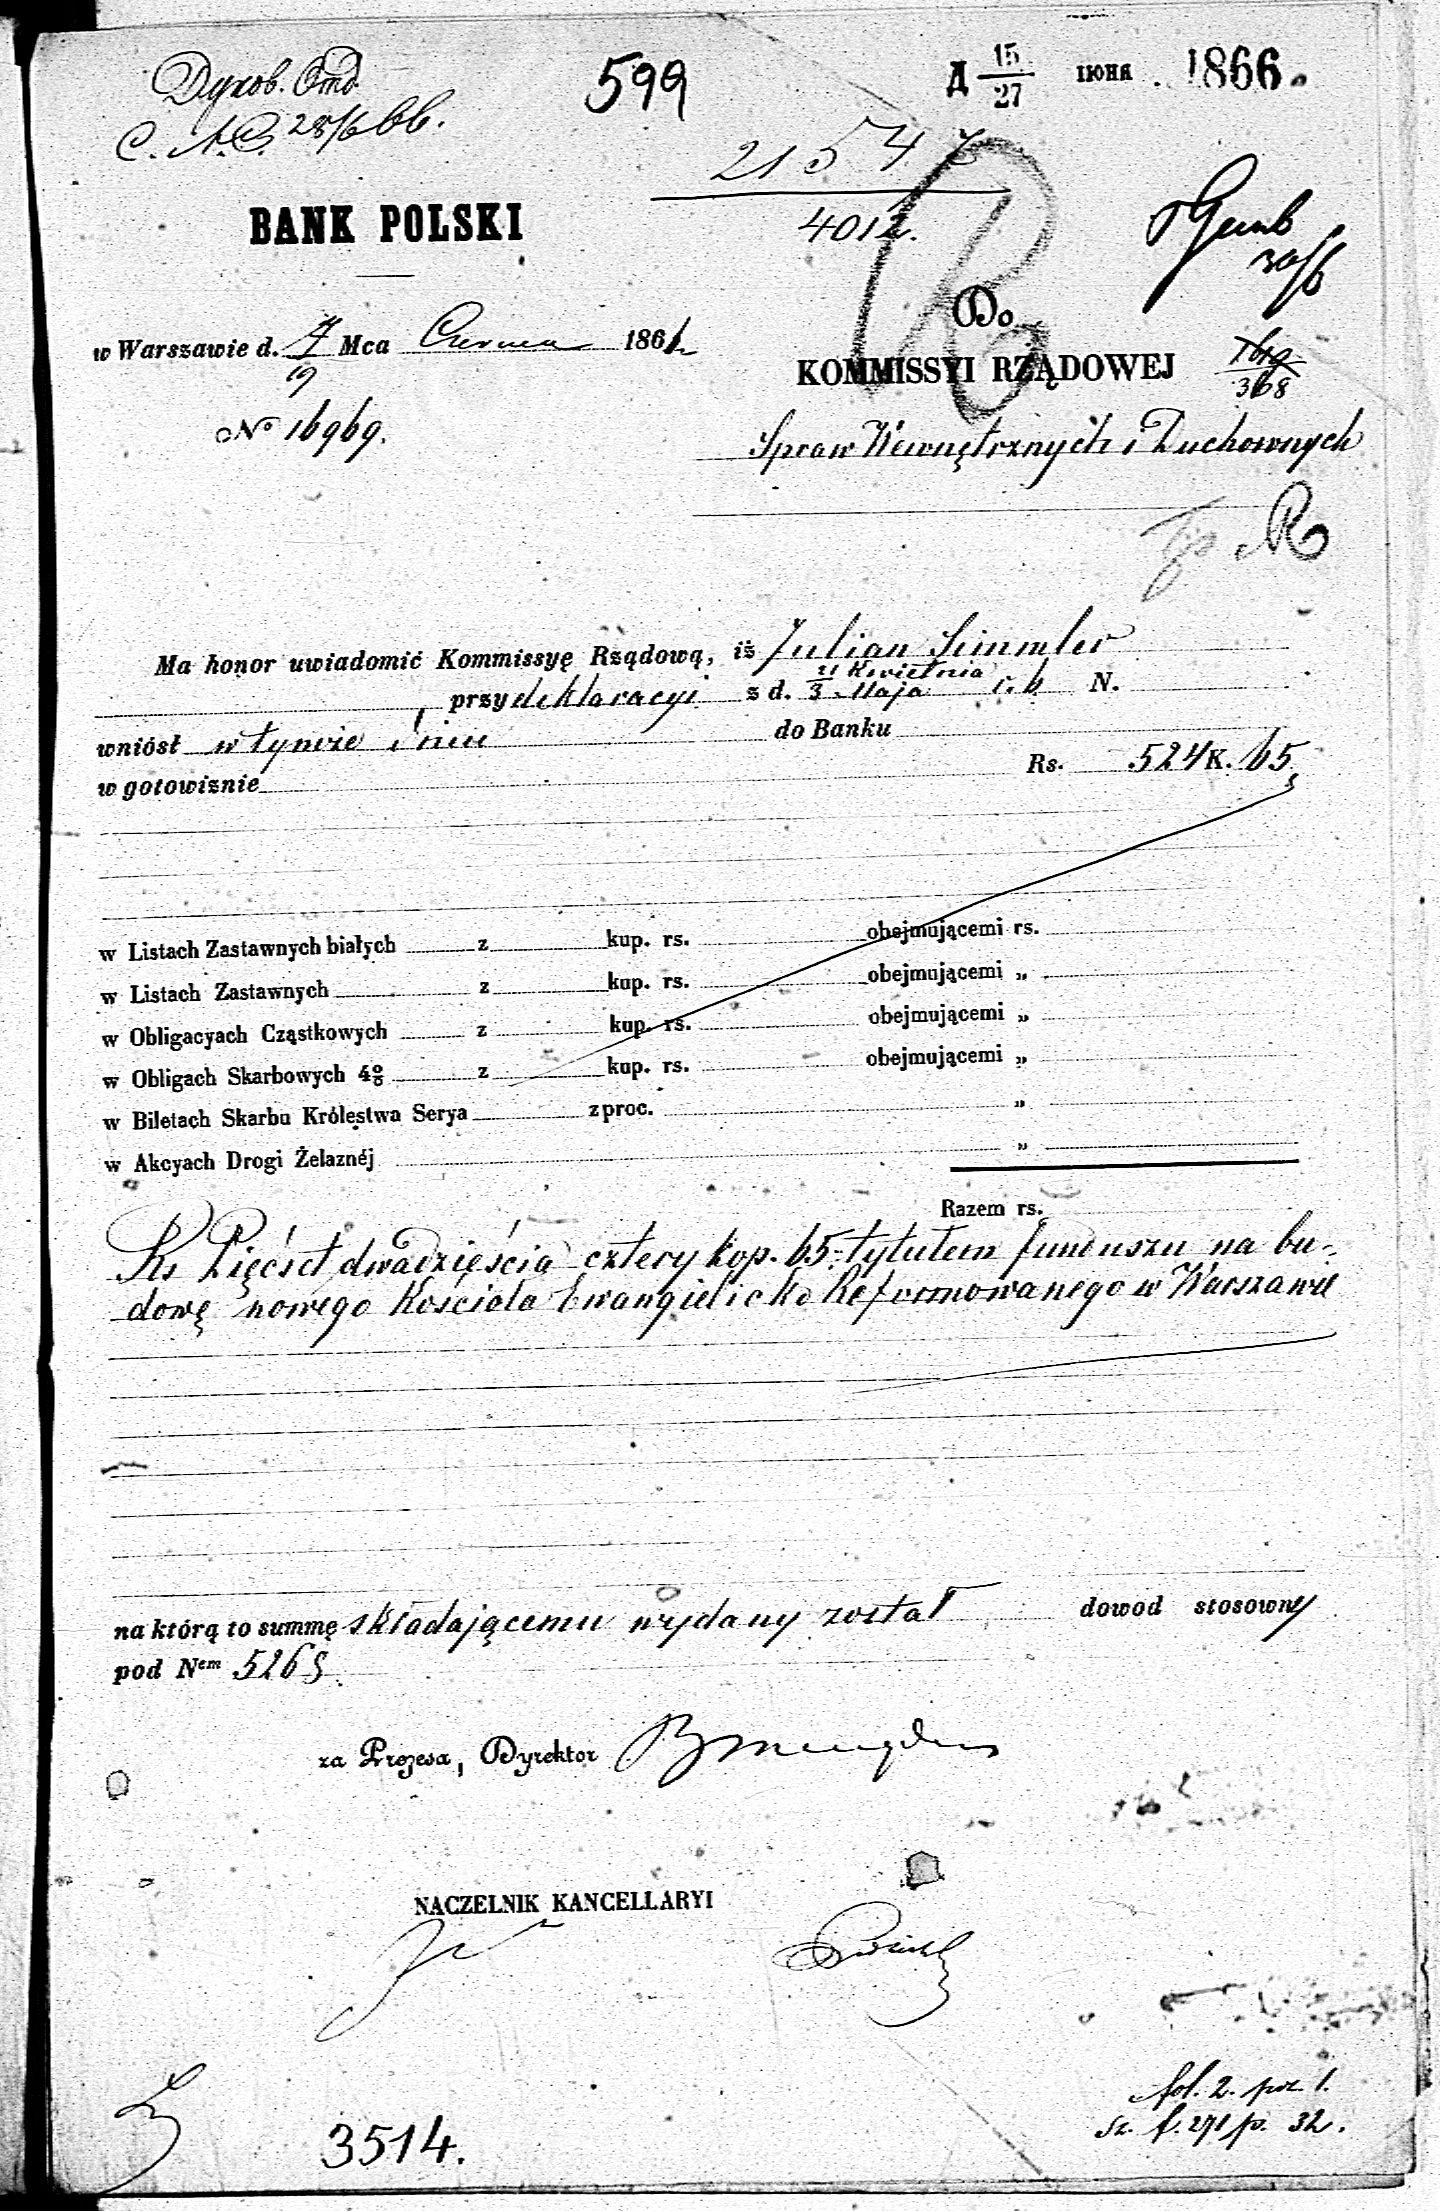 Духов. Отд.
28/6 66.
599
Д 15/27 ІЮНЯ 1866.
21547
4012.
BANK POLSKI
30/6
Do
w Warszawie d. 7/19 Mca Czerwca 1866
KOMMISSYI RZĄDOWEJ
368
No 16969.
Spraw Wewnętrznych i Duchownych
Ma honor uwiadomić Kommissyę Rządową, iż Julian Simmler
przy deklaracyi z d. 21 Kwietnia / 3 Maja r. b. N.
wniósł w tymże dniu do Banku
w gotowiznie Rs. 524 K. 65
w Listach Zastawnych białych z kup. rs. obejmującemi rs.
w Listach Zastawnych z kup. rs. obejmującemi „
w Obligacyach Cząstkowych z kup. rs. obejmującemi „
w Obligach Skarbowych 4% z kup. rs. obejmującemi „
w Biletach Skarbu Królestwa Serya z proc. „
w Akcyach Drogi Żelaznéj „
Razem rs.
Rs Pięćset dwadzieścia cztery kop. 65. tytułem funduszu na bu-
dowę nowego Kościoła Ewangielicko Reformowanego w Warszawie
na którą to summę składającemu wydany został dowod stosowny
pod Nem 5268.
za Prezesa, Dyrektor
NACZELNIK KANCELLARYI
3514.
fol. 2. poz. 1.
sz. f. 271 p. 32.